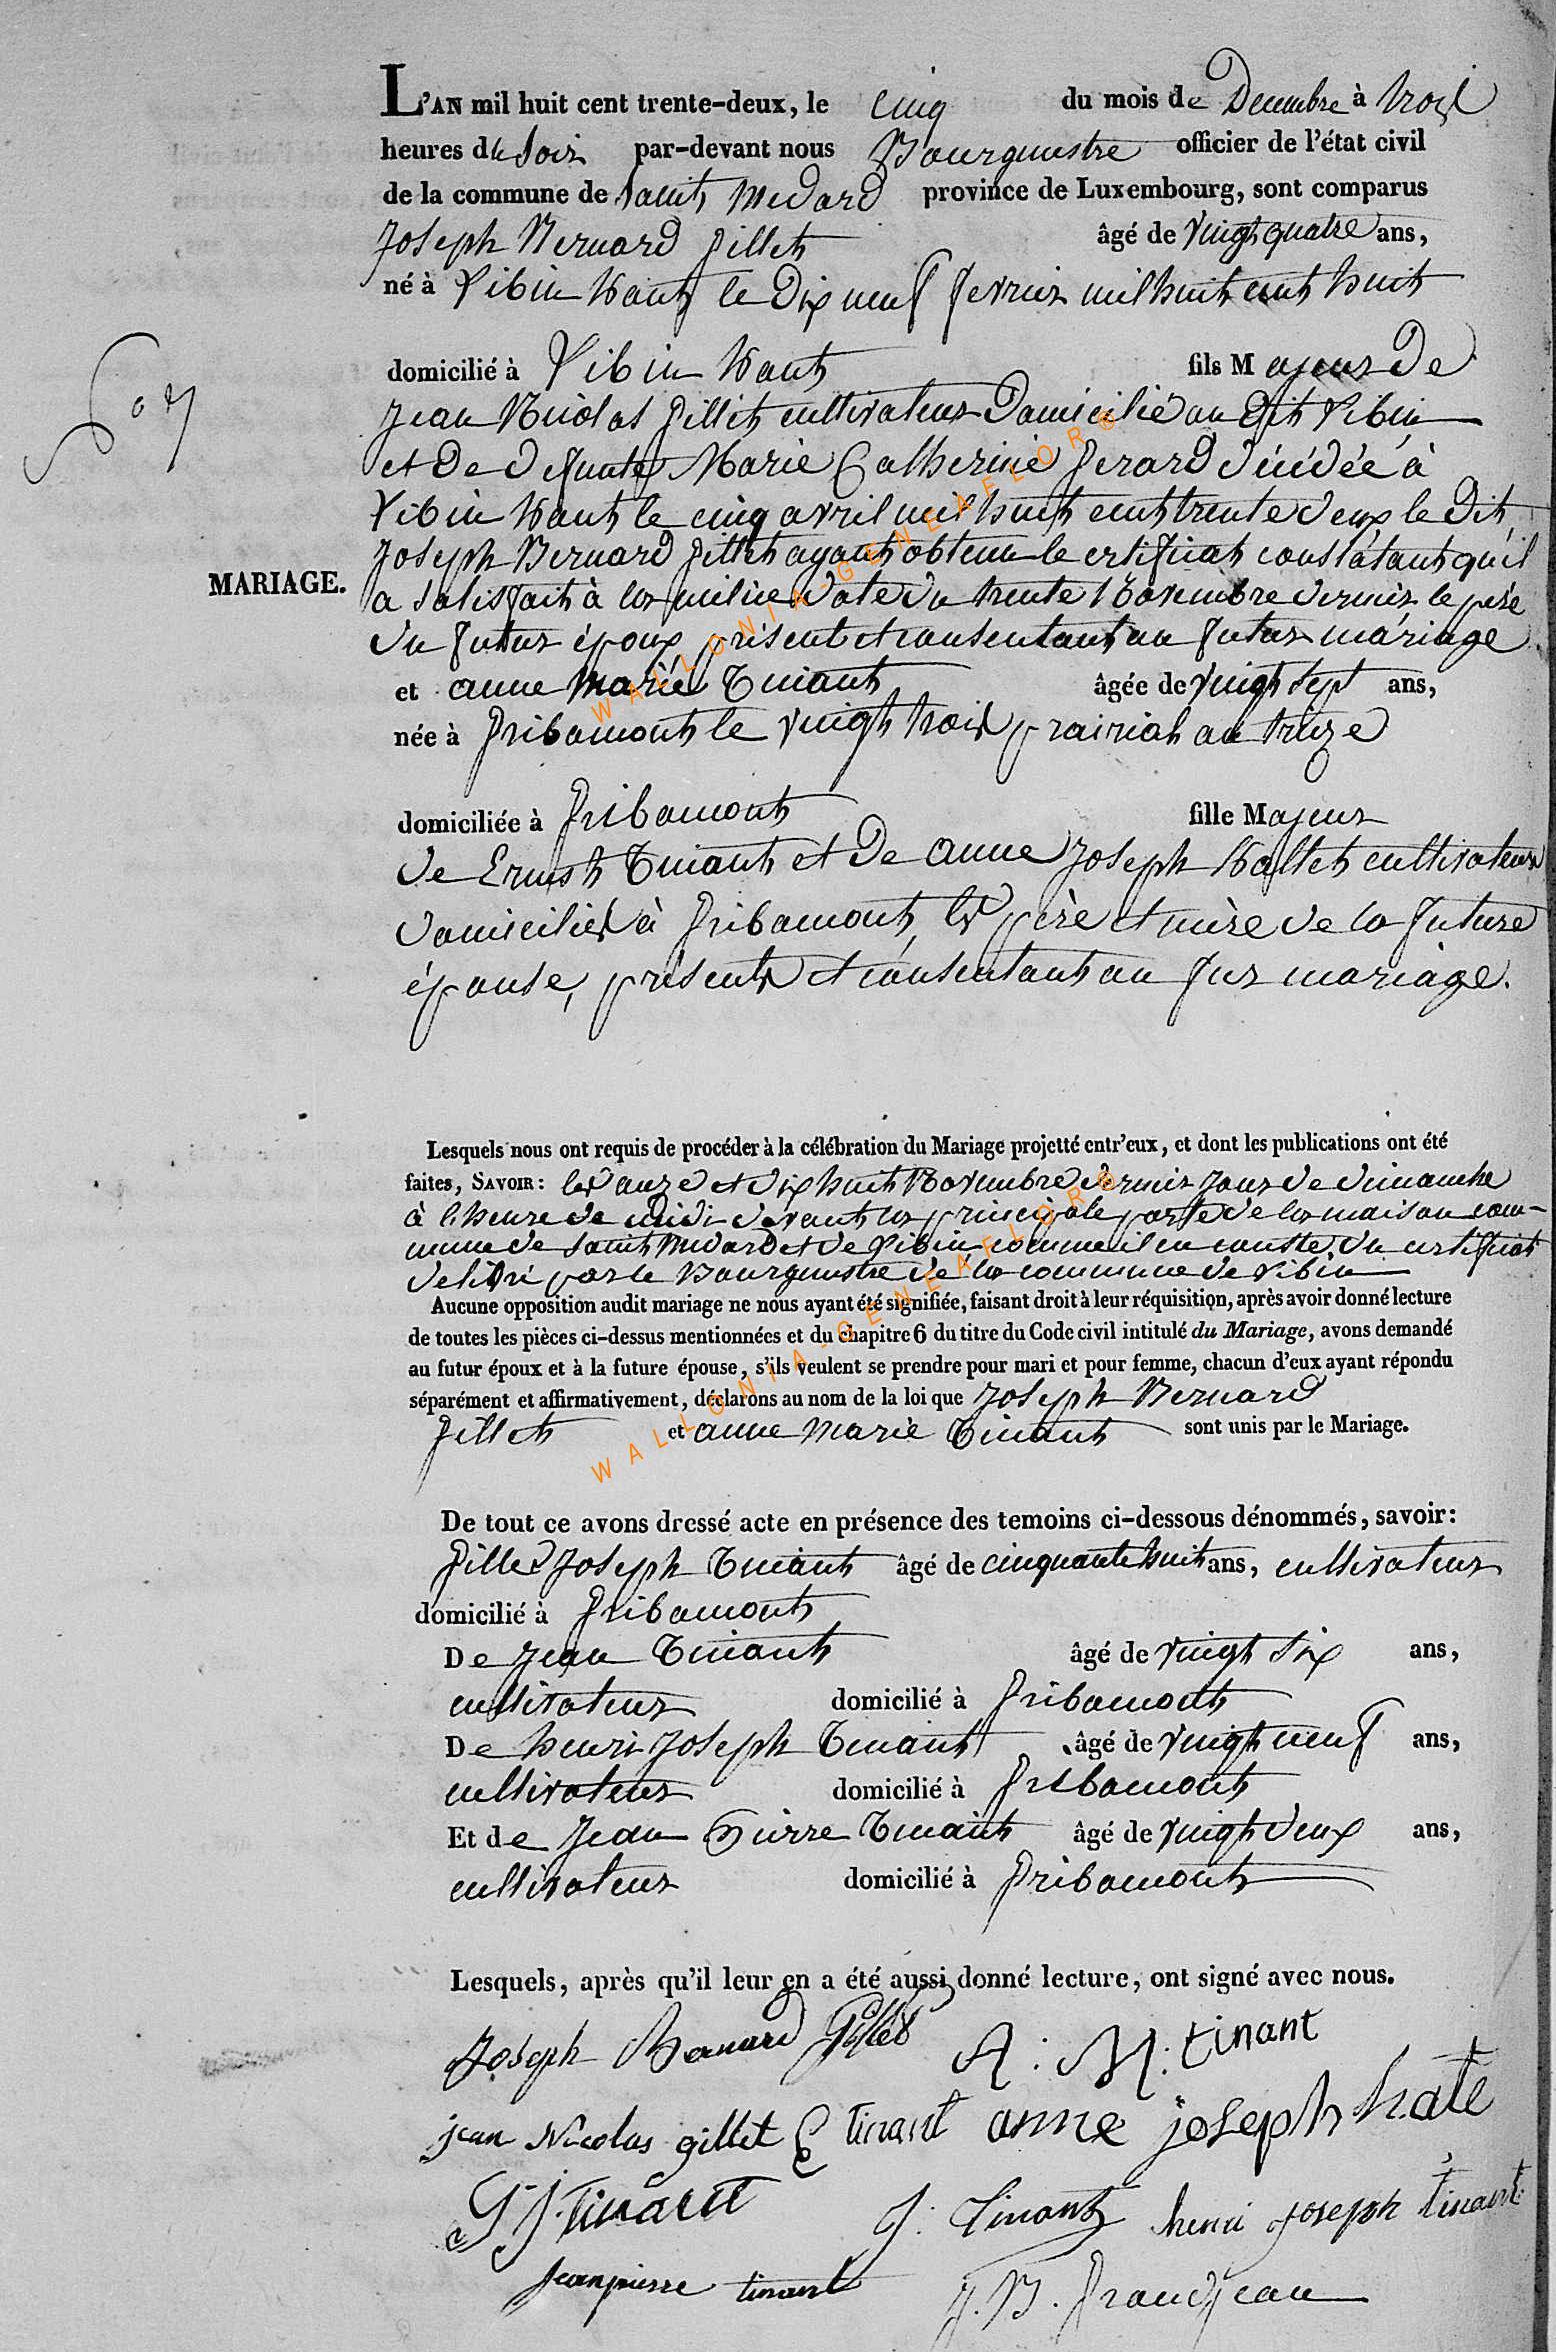 L'AN mil huit cent trente-deux, le cinq du mois de Decembre à trois
heures du Soir par-devant nous Bourguestre officier de l'état civil
de la commune de Saint Medard province de Luxembourg, sont comparus
Joseph Bernard Gillet âgé de vingt quatre ans,
né à Vibin Haut le Dix neuf fevrier mil huit cent huit
domicilié à Vibin Haut fils Majeur De
Jean Nicolas Gillet cultivateur Domicilié au dit Vibin
et De Defunte Marie Catherine Gerard décédée à
Vibin Haut le cinq avril mil huit cent trente deux le Dit
Joseph Bernard Gillet ayant obtenu le certificat constatant qu'il
MARIAGE.
a satisfait à la milice date du trente Novembre dernier le père
du futur époux présent et consentant au futur mariage
et anne Marie Tinant âgée de vingt sept ans,
née à Gribomont le vingt trois prairial an treize
domiciliée à Gribomont fille Majeur
de Ernest Tinant et De anne Joseph Hallet cultivateurs
domiciliés à Gribomont, les père et mère de la future
épouse, présents et consentant au fur mariage.
Lesquels nous ont requis de procéder à la célébration du Mariage projetté entr'eux, et dont les publications ont été
faites, SAVOIR : les onze et dix huit Novembre dernier jour de dimanche
à l'heure de midi devant la principale porte de la maison com-
mune de Saint Medard et de Vibin, comme il en conste du certificat
delivré par le Bourguestre de la commune de Vibin
Aucune opposition audit mariage ne nous ayant été signifiée, faisant droit à leur réquisition, après avoir donné lecture
de toutes les pièces ci-dessus mentionnées et du chapitre 6 du titre du Code civil intitulé du Mariage, avons demandé
au futur époux et à la future épouse, s'ils veulent se prendre pour mari et pour femme, chacun d'eux ayant répondu
séparément et affirmativement, déclarons au nom de la loi que Joseph Bernard
Gillet et anne Marie Tinant sont unis par le Mariage.
De tout ce avons dressé acte en présence des temoins ci-dessous dénommés, savoir :
Gilles Joseph Tinant âgé de cinquante huit ans, cultivateur
domicilié à Gribomont
De Jean Tinant âgé de vingt six ans,
cultivateur domicilié à Gribomont
De henri Joseph Tinant âgé de vingt neuf ans,
cultivateur domicilié à Gribomont
Et de Jean Pierre Tinant âgé de vingt deux ans,
cultivateur domicilié à Gribomont
Lesquels, après qu'il leur en a été aussi donné lecture, ont signé avec nous.
Joseph Bernard Gillet A : M : tinant
jean Nicolas gillet E tinant anne joseph hate
G J. Tinant J : Tinant henri joseph tinant
jeanpierre tinant J. B. Grandjean
WALLONIA-GENEAFLOR®
WALLONIA-GENEAFLOR®